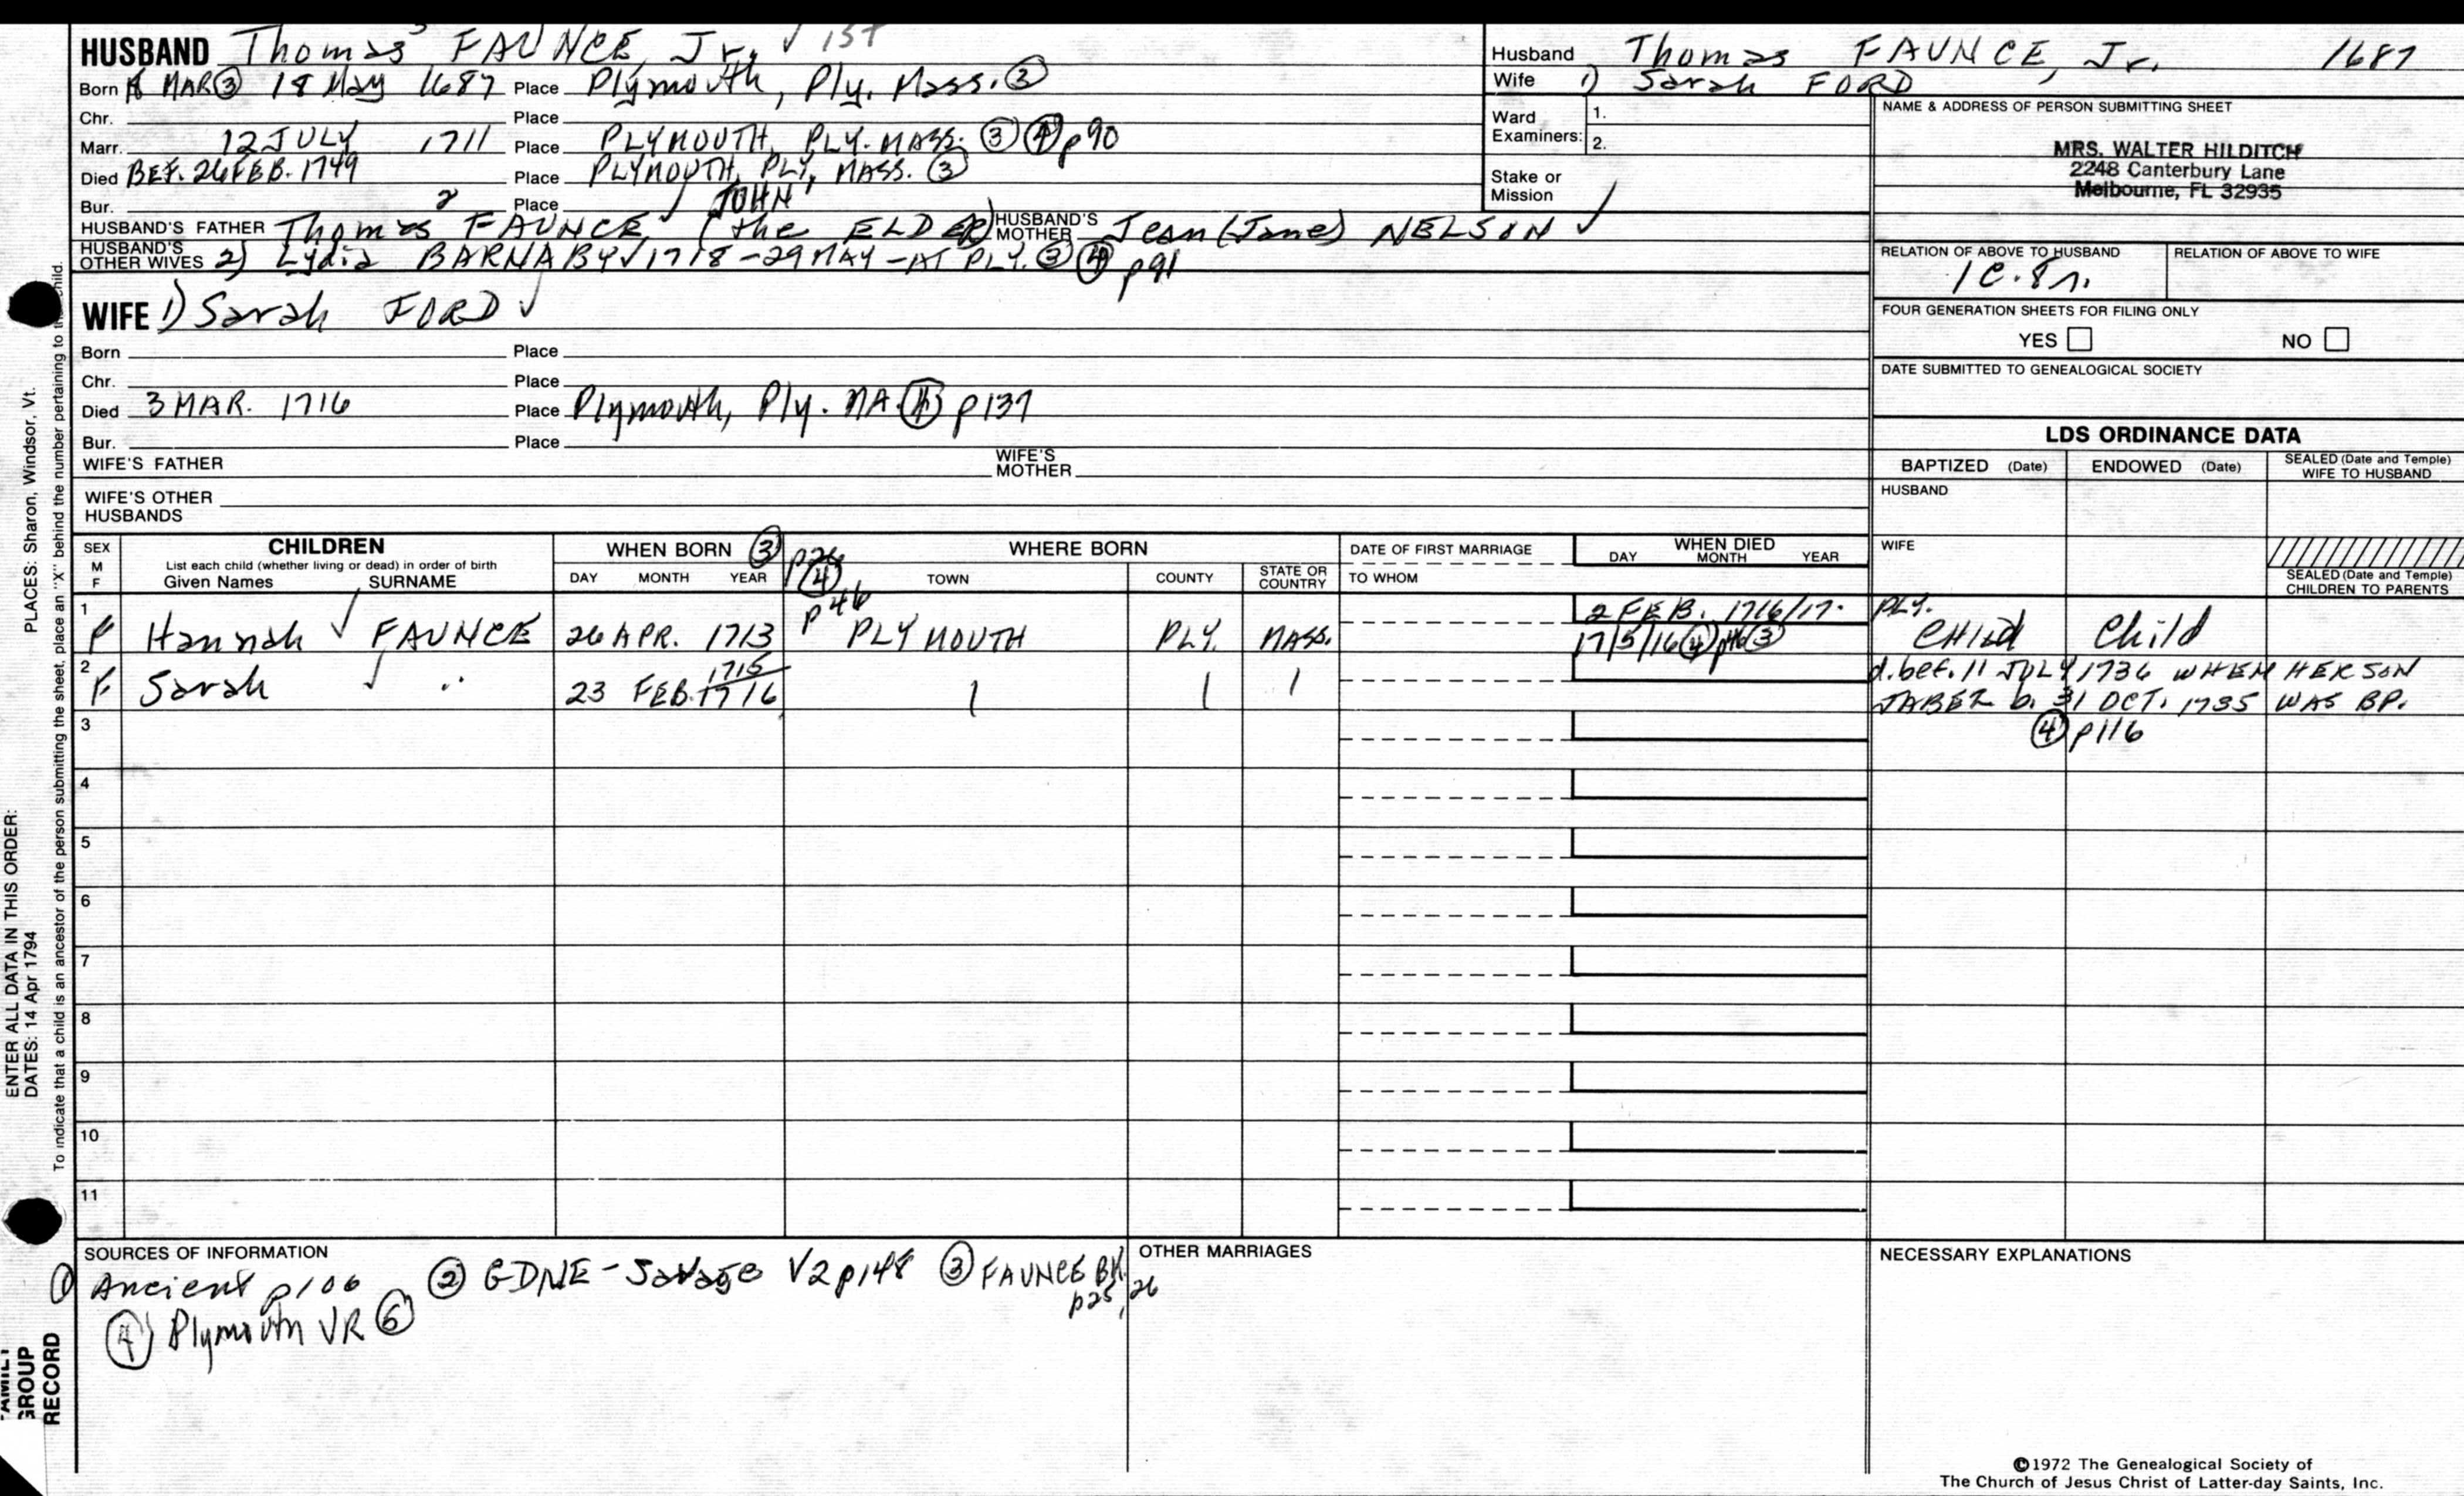 HUSBAND Thomas³ FAUNCE, Jr. ✓ 1ST
Born 18 MAR ③ 18 May 1687 Place Plymouth, Ply. Mass. ③
Chr. Place
Marr. 12 JULY 1711 Place PLYMOUTH, PLY. MASS. ③ ④ p90
Died BEF. 26 FEB. 1749 Place PLYMOUTH, PLY, MASS. ③
Bur. Place
HUSBAND'S FATHER Thomas² FAUNCE ✓ JOHN¹ (the ELDER) HUSBAND'S MOTHER Jean (Jane) NELSON ✓
HUSBAND'S OTHER WIVES 2) Lydia BARNABY ✓ 1718 - 29 MAY - AT PLY. ③ ④ p91
WIFE 1) Sarah FORD ✓
Born Place
Chr. Place
Died 3 MAR. 1716 Place Plymouth, Ply. MA. ④ p137
Bur. Place
WIFE'S FATHER WIFE'S MOTHER
WIFE'S OTHER HUSBANDS
Husband Thomas FAUNCE, Jr. 1687
Wife 1) Sarah FORD
Ward Examiners: 1.
2.
Stake or Mission
NAME & ADDRESS OF PERSON SUBMITTING SHEET
MRS. WALTER HILDITCH
2248 Canterbury Lane
Melbourne, FL 32935
RELATION OF ABOVE TO HUSBAND RELATION OF ABOVE TO WIFE
1C.8r.
FOUR GENERATION SHEETS FOR FILING ONLY
YES NO
DATE SUBMITTED TO GENEALOGICAL SOCIETY
LDS ORDINANCE DATA
BAPTIZED (Date) ENDOWED (Date) SEALED (Date and Temple) WIFE TO HUSBAND
HUSBAND
WIFE
SEALED (Date and Temple) CHILDREN TO PARENTS
SEX M F CHILDREN WHEN BORN ③ p26 WHERE BORN DATE OF FIRST MARRIAGE WHEN DIED
List each child (whether living or dead) in order of birth
Given Names SURNAME DAY MONTH YEAR ④ p46 TOWN COUNTY STATE OR COUNTRY TO WHOM DAY MONTH YEAR
1 F Hannah ✓ FAUNCE 26 APR. 1713 PLYMOUTH PLY. MASS. 2 FEB. 1716/17. PLY. Child Child
17/5/16 ④ ③
2 F Sarah ✓ " 23 FEB. 1715/1716 d. bef. 11 JULY 1736 WHEN HER SON
JABEZ b. 31 OCT. 1735 WAS BP.
3 ④ p116
4
5
6
7
8
9
10
11
SOURCES OF INFORMATION
① Ancient p106 ② GDNE - Savage V2 p148 ③ FAUNCE BK. p25, 26
④ Plymouth VR ⑥
OTHER MARRIAGES
NECESSARY EXPLANATIONS
©1972 The Genealogical Society of
The Church of Jesus Christ of Latter-day Saints, Inc.
ENTER ALL DATA IN THIS ORDER:
DATES: 14 Apr 1794 PLACES: Sharon, Windsor, Vt.
To indicate that a child is an ancestor of the person submitting the sheet, place an "X" behind the number pertaining to that child.
FAMILY
GROUP
RECORD